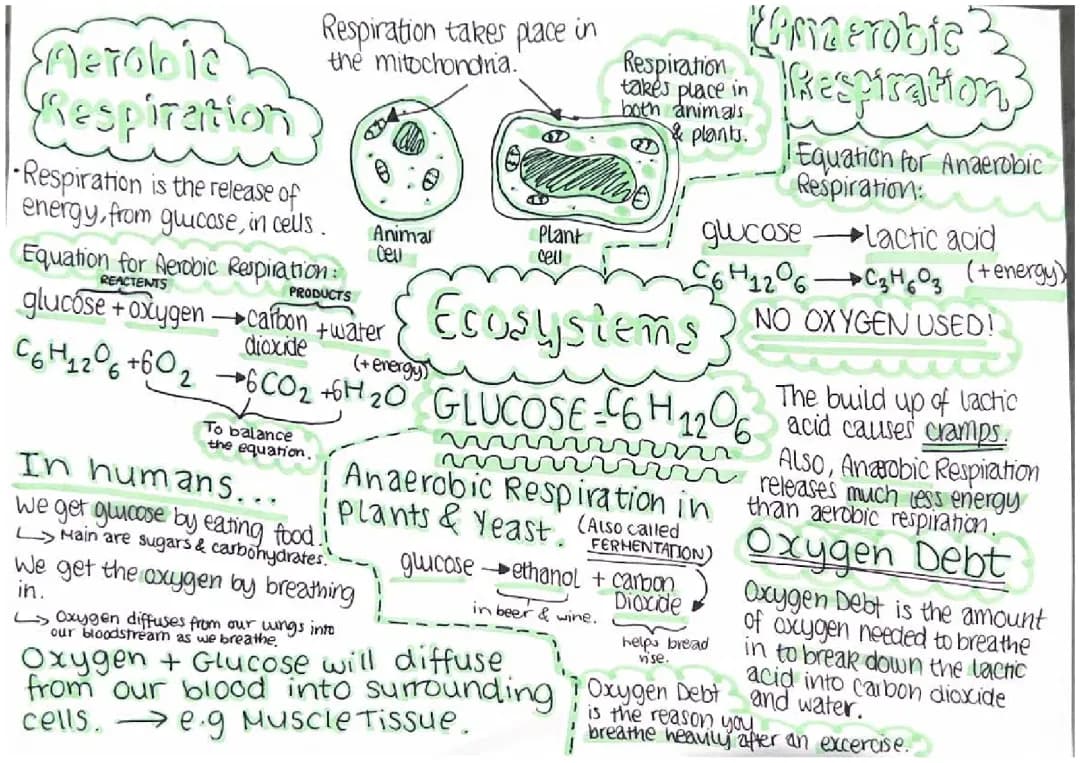 Aerobic
Respiration
·Respiration is the release of
energy, from glucose, in cells.
Equation for Aerobic Respiration:
REACTENTS
PRODUCTS
glucose + oxygen → carbon + water
dioxide
(+ energy)
C6H12O6 + 6O2 → 6CO2 + 6H2O
To balance
the equation.
In humans...
We get glucose by eating food.
↳ Main are sugars & carbohydrates.
We get the oxygen by breathing
in.
↳ Oxygen diffuses from our lungs into
our bloodstream as we breathe.
Oxygen + Glucose will diffuse
from our blood into surrounding
cells. → e.g Muscle Tissue.
Respiration takes place in
the mitochondria.
Animal
Cell
Plant
cell
Respiration
takes place in
both animals
& plants.
Ecosystems
GLUCOSE = C6H12O6
Anaerobic Respiration in
Plants & Yeast.
(Also called
FERMENTATION)
glucose → ethanol + carbon
Dioxide
in beer & wine.
helps bread
rise.
Oxygen Debt
is the reason you
breathe heavily after an excercise.
Anaerobic
Respiration
Equation for Anaerobic
Respiration:
glucose → Lactic acid
(+ energy)
C6H12O6 → C3H6O3
NO OXYGEN USED!
The build up of lactic
acid causes cramps.
Also, Anaerobic Respiration
releases much less energy
than aerobic respiration.
Oxygen Debt
Oxygen Debt is the amount
of oxygen needed to breathe
in to break down the lactic
acid into carbon dioxide
and water.